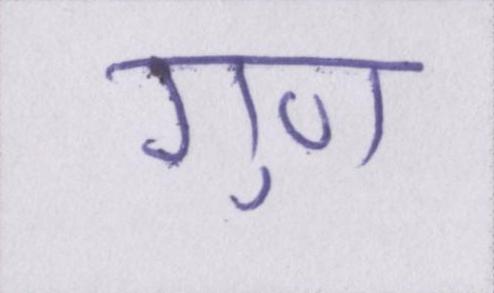 गुण